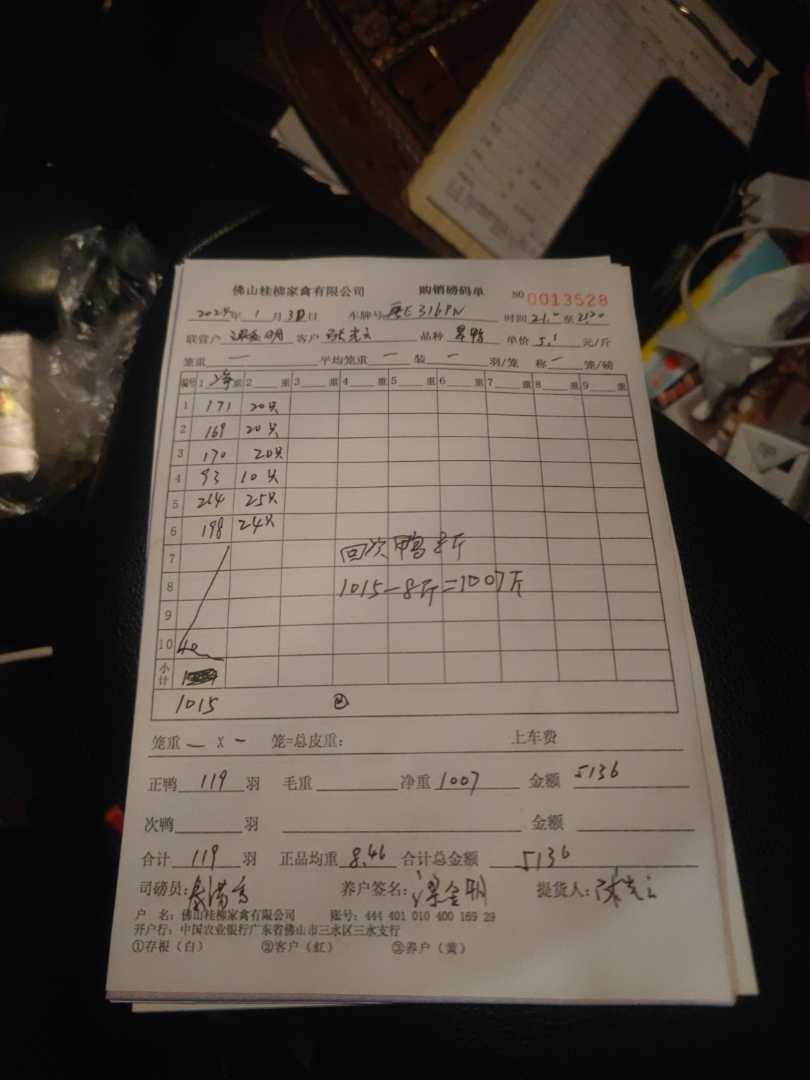 佛山桂柳家禽有限公司 购销磅码单 NO 0013528
2024年 1 月 30日 车牌号 E316PN 时间 21.0 至 21.20
联营户 梁金明 客户 张光云 品种 单价 5.1 元/斤
笼重 一 平均笼重 一 装 一 羽/笼 称 一 笼/磅
编号 1 重 2 重 3 重 4 重 5 重 6 重 7 重 8 重 9 重
1 171 20只
2 169 20只
3 170 20只
4 93 10只
5 214 25只
6 198 24只
7 回次鸭8斤
8 1015-8斤=1007斤
9
10
小计
1015
笼重 一 X 一 笼=总皮重: 上车费
正鸭 119 羽 毛重 净重 1007 金额 5136
次鸭 羽 金额
合计 119 羽 正品均重 8.46 合计总金额 5136
司磅员: 养户签名: 梁金明 提货人:
户 名: 佛山桂柳家禽有限公司 账号: 444 401 010 400 169 29
开户行: 中国农业银行广东省佛山市三水区三水支行
①存根（白） ②客户（红） ③养户（黄）